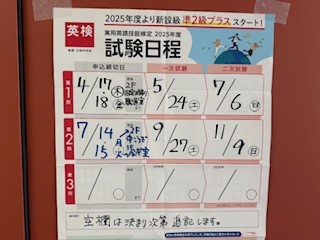 英検
2025年度より新設級 準2級プラス スタート!
実用英語技能検定 2025年度
試験日程
申込締切日 一次試験 二次試験
第1回
4/17 木
4/18 金
5/24 土
7/6 日
第2回
7/14 月
7/15 火
2F
9/27 土
11/9 日
第3回
空欄は決まり次第追記します。